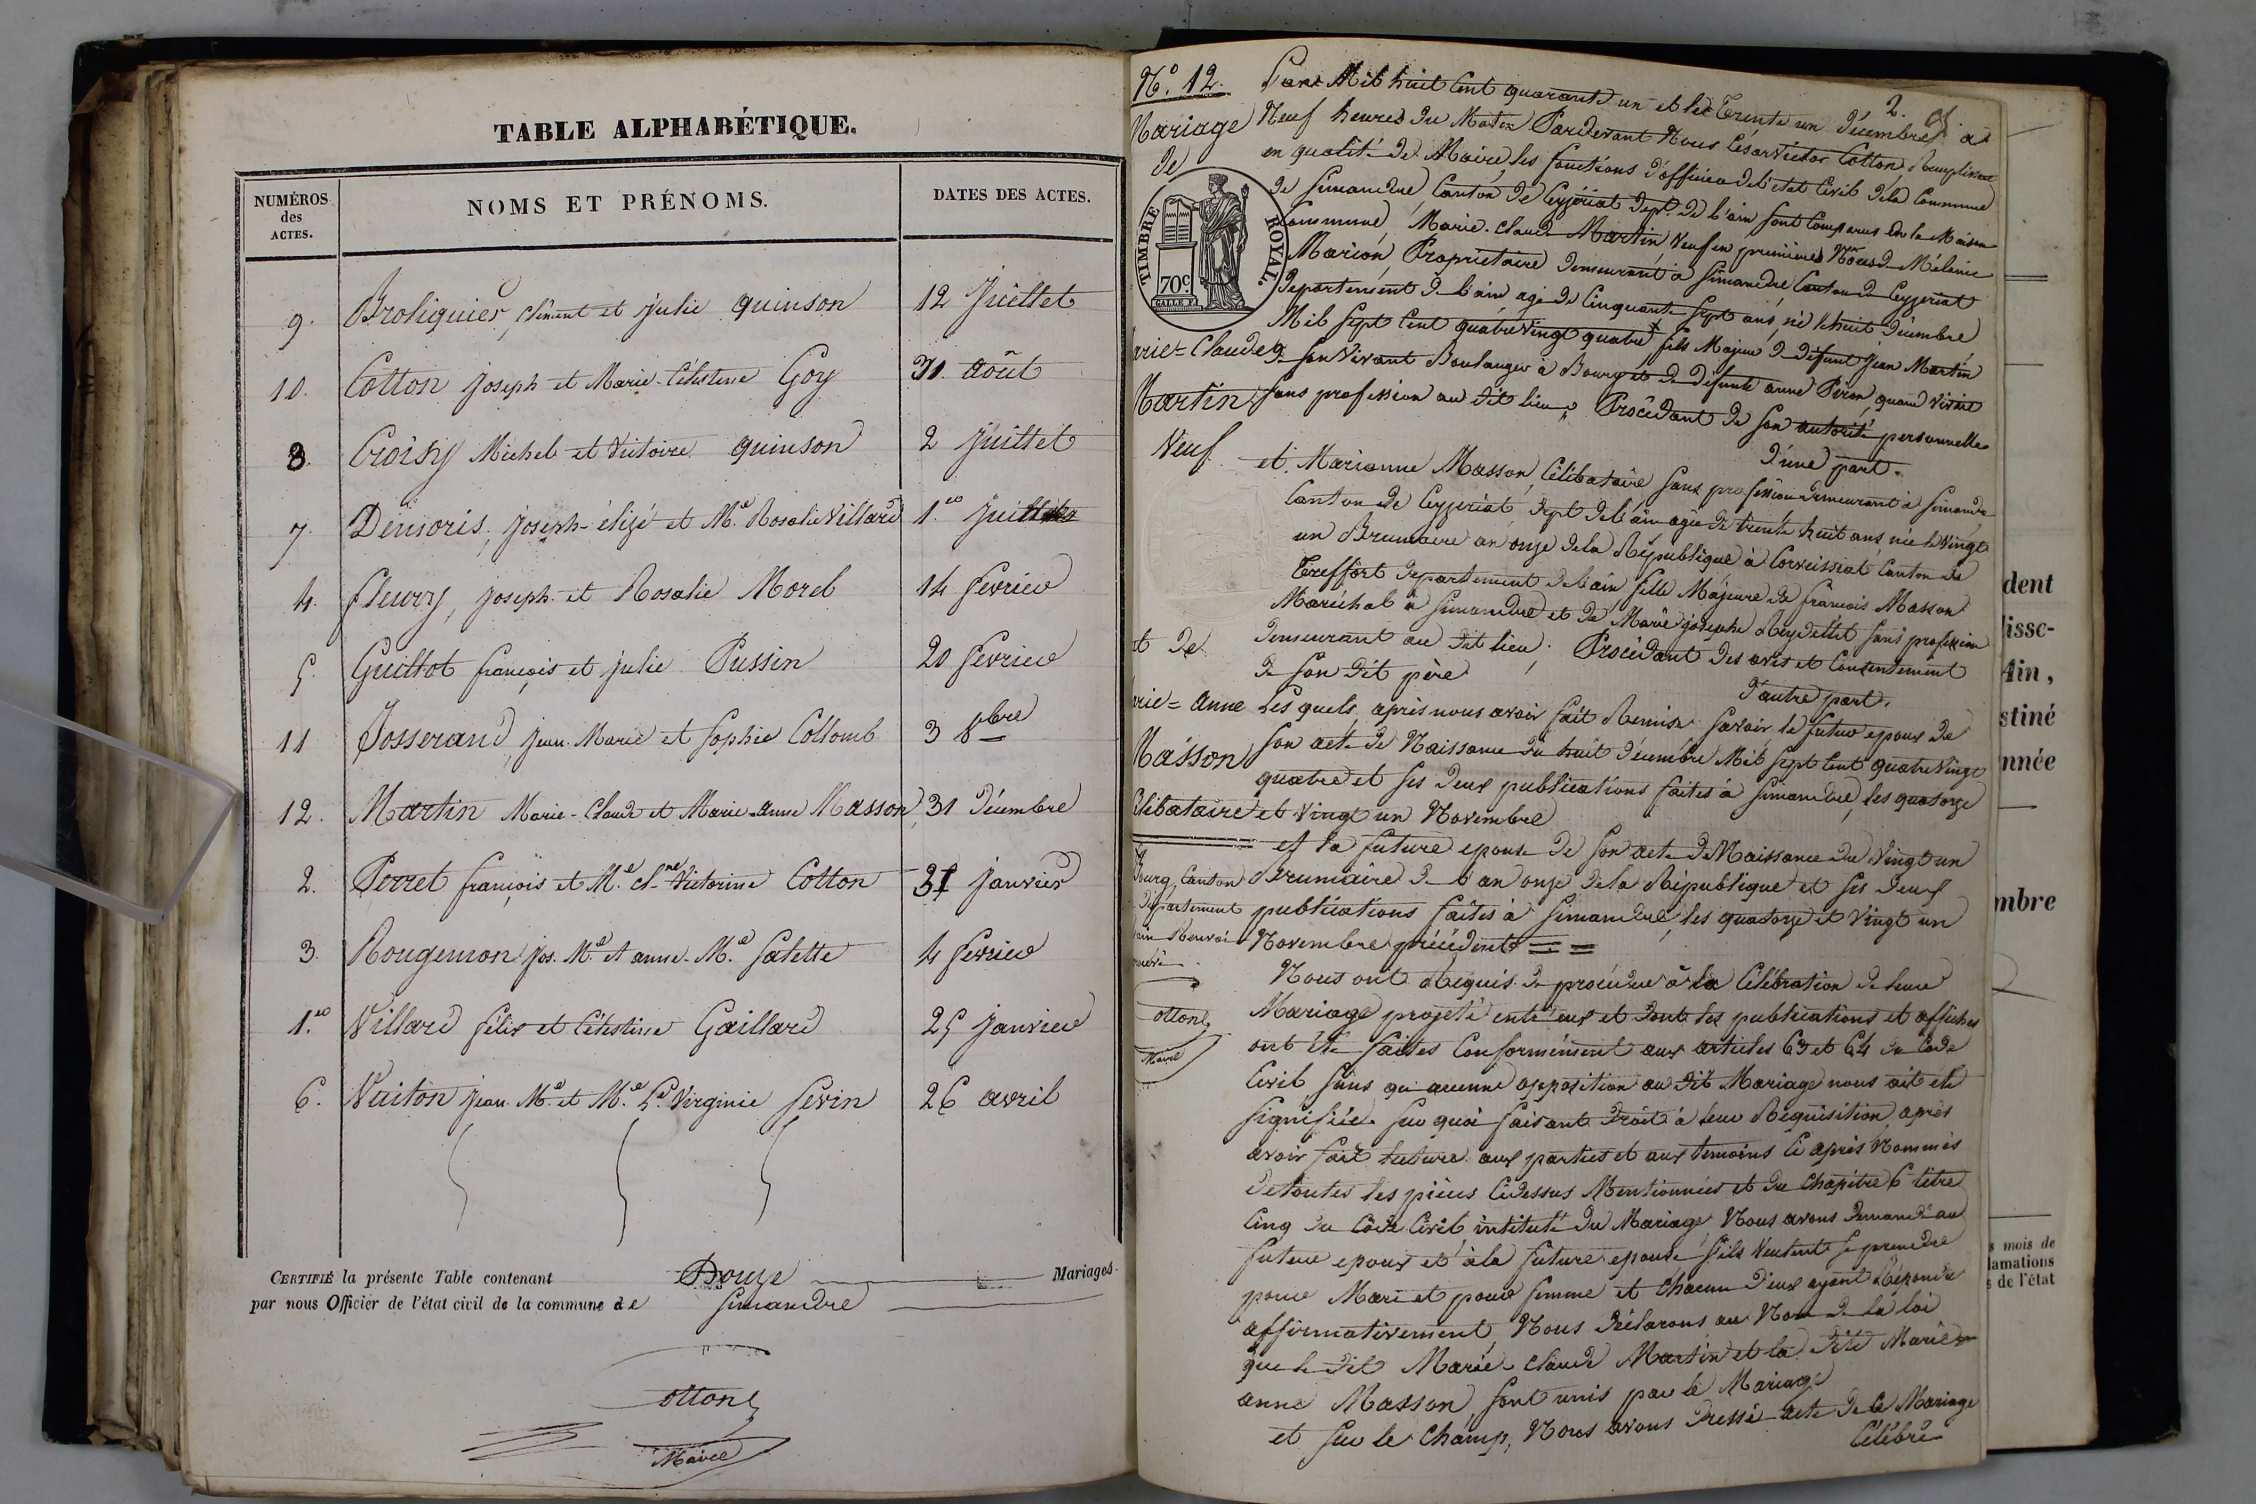 TABLE ALPHABÉTIQUE.
NUMÉROS des ACTES.
NOMS ET PRÉNOMS.
DATES DES ACTES.
9. Broliquier, Clément et Julie Quinson 12 Juillet
10. Cotton Joseph et Marie-Célestine Goy 31 août
8. Croisy Michel et Victoire Quinson 2 Juillet
7. Denisoris, Joseph-élizé et M.e Rosalie Villard 1.er Juillet
4. Fleury, Joseph et Rosalie Morel 14 fevrier
5. Guillot françois et Julie Pussin 20 fevrier
11 Josserand, Jean-Marie et Sophie Collomb 3 8bre
12. Martin Marie-Claude et Marie-anne Masson 31 Décembre
2. Perret françois et M.e Cl.ne Victorine Cotton 31 Janvier
3. Rougemon Jos. M.e et anne-M.e Salette 4 fevrier
1.er Villard félix et Célestine Gaillard 25 Janvier
6. Vuiton Jean-M.e et M.e Virginie Sevin 26 avril
CERTIFIÉ la présente Table contenant Douze Mariages
par nous Officier de l'état civil de la commune de Simandre
Cotton
Maire
2.
N.o 12.
Mariage
de
TIMBRE ROYAL.
70c
Marie=Claude
Martin
Veuf
et de
Marie=Anne
Masson
Célibataire
Bourg, Canton
Département
ain Renvoi
Cotton
Maire
L'an Mil huit Cent quarante un et le Trente un décembre à
Neuf heures du Matin Pardevant Nous César Victor Cotton, Remplissant
en qualité de Maire, les fonctions d'officier de l'état Civil de la Commune
de Simandre, Canton de Ceyzériat dép.t de l'ain sont Comparus en la Maison
Commune, Marie-Claude Martin, Veuf en premières Noces de Mélanie
Marion, Propriétaire demeurant à Simandre Canton de Ceyzeriat
Département de l'ain agé de Cinquante Sept ans, né le huit décembre
Mil Sept Cent quatre Vingt quatre fils Majeur de défunt Jean Martin
de son Vivant Boulanger à Bourg et de Défunte anne Piron, quand vivait
sans profession au dit lieu, Procédant de son autorité personnelle
d'une part.
et Marianne Masson, Célibataire sans profession demeurant à Simandre
Canton de Ceyzeriat, dép.t de l'ain agée de trente huit ans, née le Vingt
un Brumaire an onze de la République à Corveissiat Canton de
Treffort département de l'ain fille Majeure de françois Masson
Maréchal à Simandre et de Marie Josephe Reydellet sans profession
demeurant au dit lieu. Procédant des avis et Consentement
de son dit père d'autre part.
Les quels, après nous avoir fait Remise Savoir le futur epoux de
son acte de Naissance du huit décembre Mil Sept Cent quatre Vingt
quatre et ses deux publications faites à Simandre, les quatorze
et vingt un Novembre
et la future epouse de son acte de Naissance du Vingt un
Brumaire de l'an onze de la République et ses deux
publications faites à Simandre, les quatorze et Vingt un
Novembre précédent
Nous ont Requis de procéder à la Célébration de leur
Mariage projeté entr'eux et dont les publications et affiches
ont été faites Conformément aux articles 63 et 64 du Code
Civil Sans qu'aucune opposition au dit Mariage nous ait été
signifiée Sur quoi faisant droit à leur Réquisition, après
avoir fait lecture aux parties et aux temoins Ci après Nommés
de toutes les pièces Cidessus Mentionnées et du Chapitre 6 titre
Cinq du Code Civil, intitulé Du Mariage, Nous avons demandé au
futur epoux et à la future epouse, s'ils Veulent se prendre
pour Mari et pour femme et Chacun d'eux ayant Répondu
affirmativement, Nous déclarons au Nom de la loi
que le dit Marie-Claude Martin et la dite Marie-
anne Masson, sont unis par le Mariage
et sur le Champ, Nous avons dressé acte de ce Mariage
Célébré
dent
stiné
nnée
mbre
s mois de
lamations
s de l'état